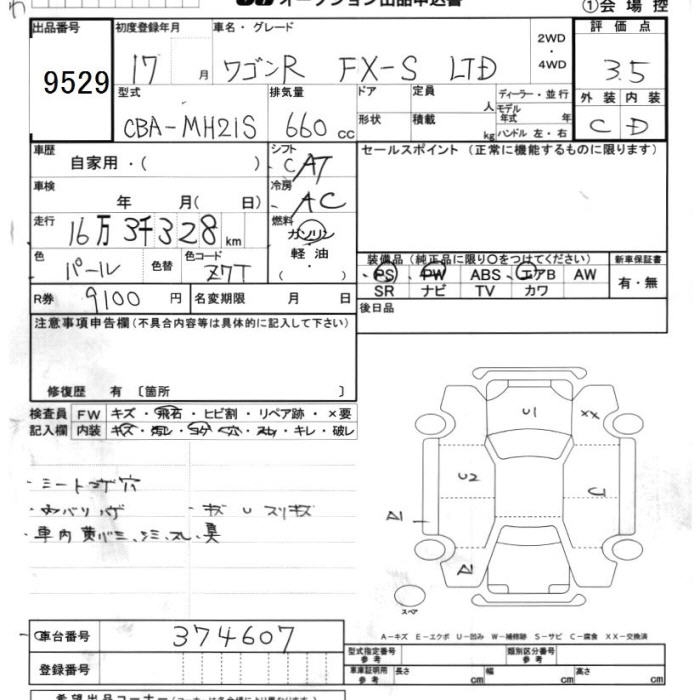 オークション出品申込書 ①会場控
出品番号 初度登録年月 車名・グレード 2WD・4WD 評価点
9529 17 月 ワゴンR FX-S LTD 3.5
型式 排気量 ドア 定員 人 ディーラー・並行 外装 内装
CBA-MH21S 660 cc 形状 積載 kg モデル年式 年 ハンドル 左・右 C D
車歴 自家用・( ) シフト CAT セールスポイント (正常に機能するものに限ります)
車検 年 月( 日) 冷房 AC
走行 16万3千328 km 燃料 ガソリン
軽油
( ・ )
色 パール 色替 色コード Z7T 装備品 (純正品に限り○をつけてください) 新車保証書
PS PW ABS エアB AW 有・無
SR ナビ TV カワ
R券 9100 円 名変期限 月 日 後日品
注意事項申告欄 (不具合内容等は具体的に記入して下さい)
修復歴 有 〔箇所 〕
検査員 FW キズ・飛石・ヒビ割・リペア跡・×要
記入欄 内装 キズ・汚レ・コゲ・穴・スレ・キレ・破レ
・シートコゲ穴
・キズ U スリキズ
・車内黄バミ、シミ、スレ、臭
U1 XX
U2 U
スペア
車台番号 374607
A-キズ E-エクボ U-凹み W-補修跡 S-サビ C-腐食 XX-交換済
登録番号
型式指定番号 参考 類別区分番号 参考
車庫証明用 参考 長さ cm 幅 cm 高さ cm
希望出品コーナー